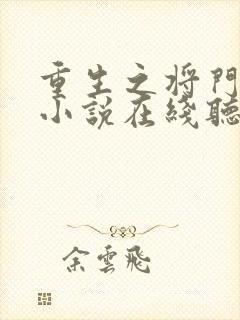 重生之将門
小說在綫聽
余雲飛